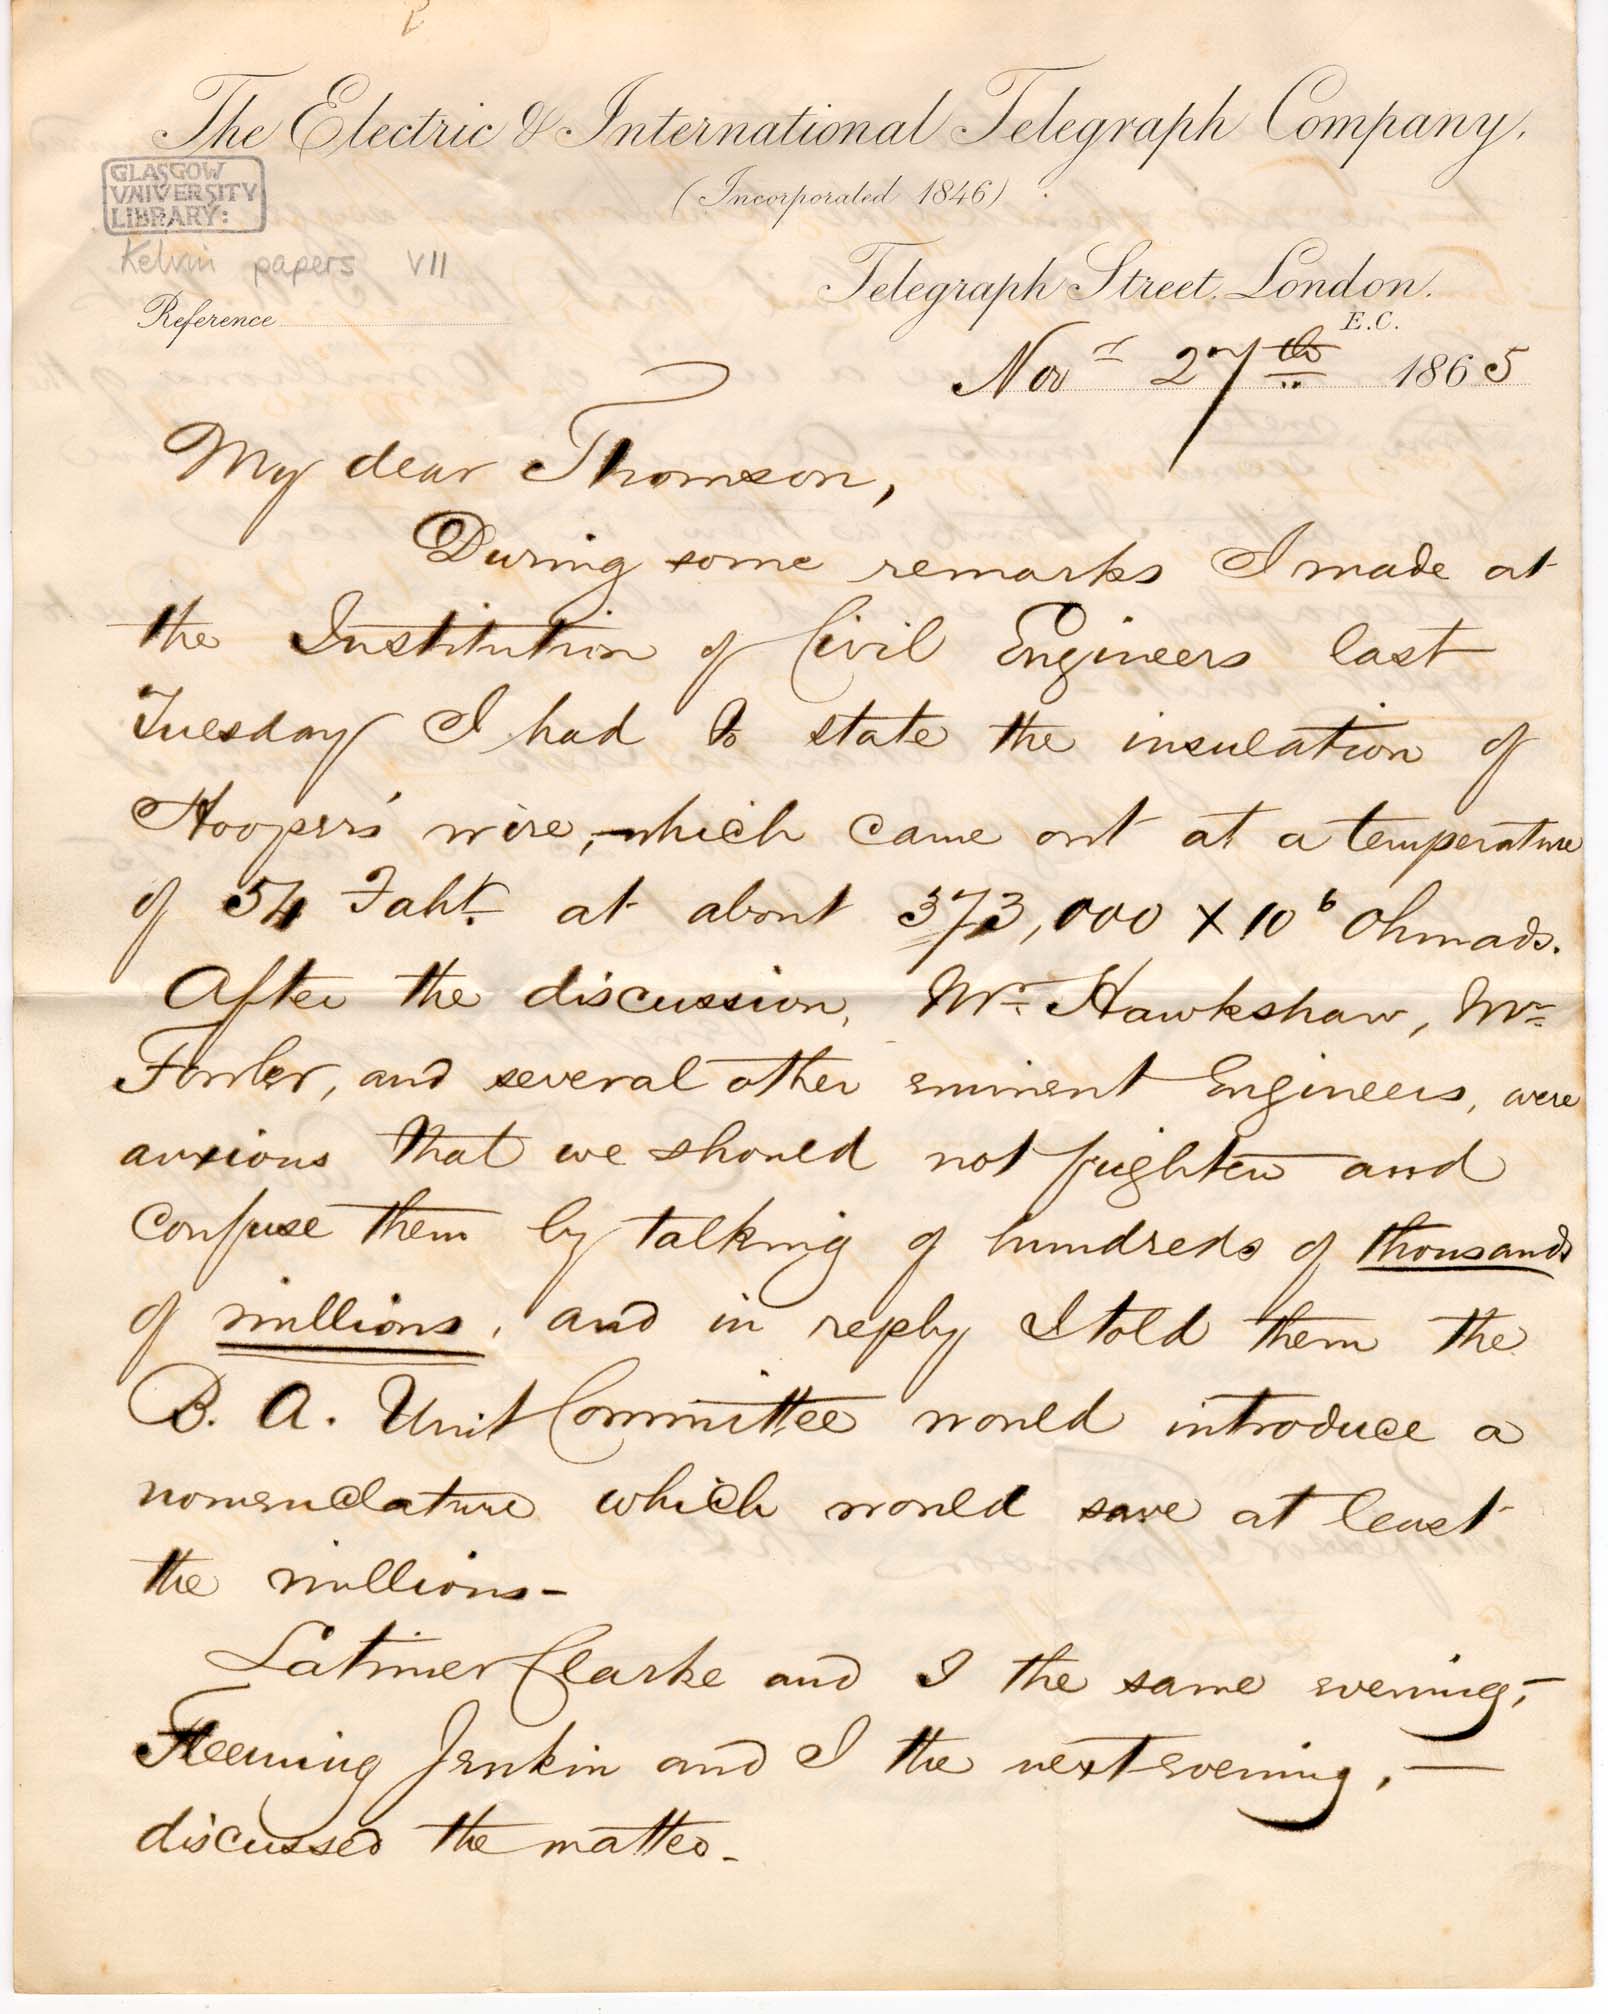 The Electric & International Telegraph Company.
(Incorporated 1846)
GLASGOW
UNIVERSITY
LIBRARY:
Kelvin papers VII
Telegraph Street. London.
E.C.
Reference
Novr 27th 1865
My dear Thomson,
During some remarks I made at
the Institution of Civil Engineers last
Tuesday I had to state the insulation of
Hooper's wire, which came out at a temperature
of 54 Faht. at about 373,000 × 10⁶ Ohmads.
After the discussion, Mr. Hawkshaw, Mr
Fowler, and several other eminent Engineers, were
anxious that we should not frighten and
confuse them by talking of hundreds of thousands
of millions, and in reply I told them the
B. A. Unit Committee would introduce a
nomenclature which would save at least
the millions-
Latimer Clarke and I the same evening,-
Fleeming Jenkin and I the next evening, —
discussed the matter-